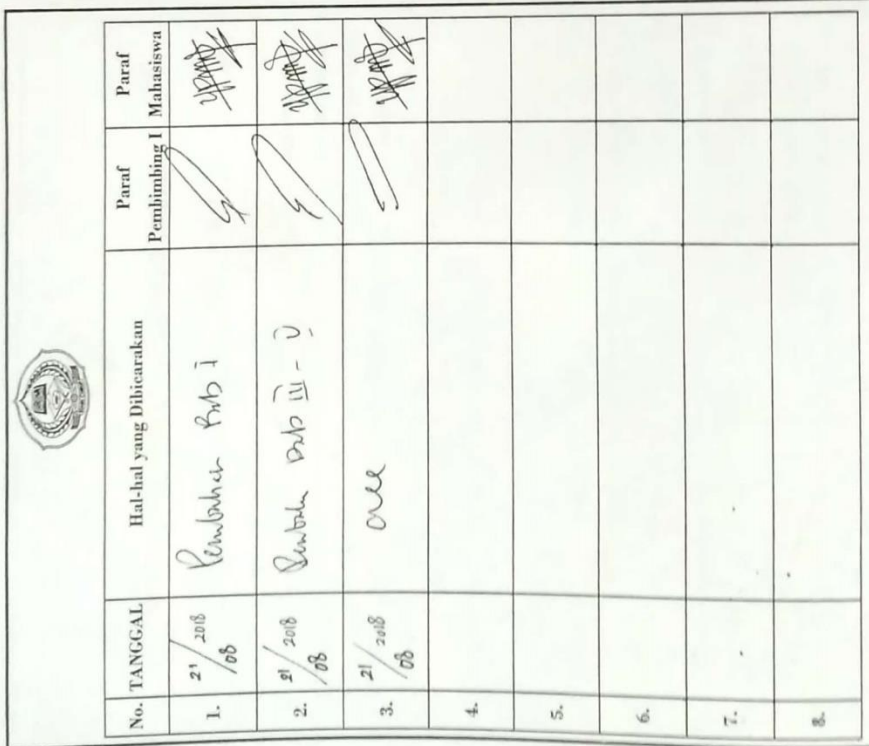 No. TANGGAL Hal-hal yang Dibicarakan Paraf Pembimbing I Paraf Mahasiswa
1. 21/08 2018 Bab I
2. 21/08 2018 Bab III - V
3. 21/08 2018 acc
4.
5.
6.
7.
8.